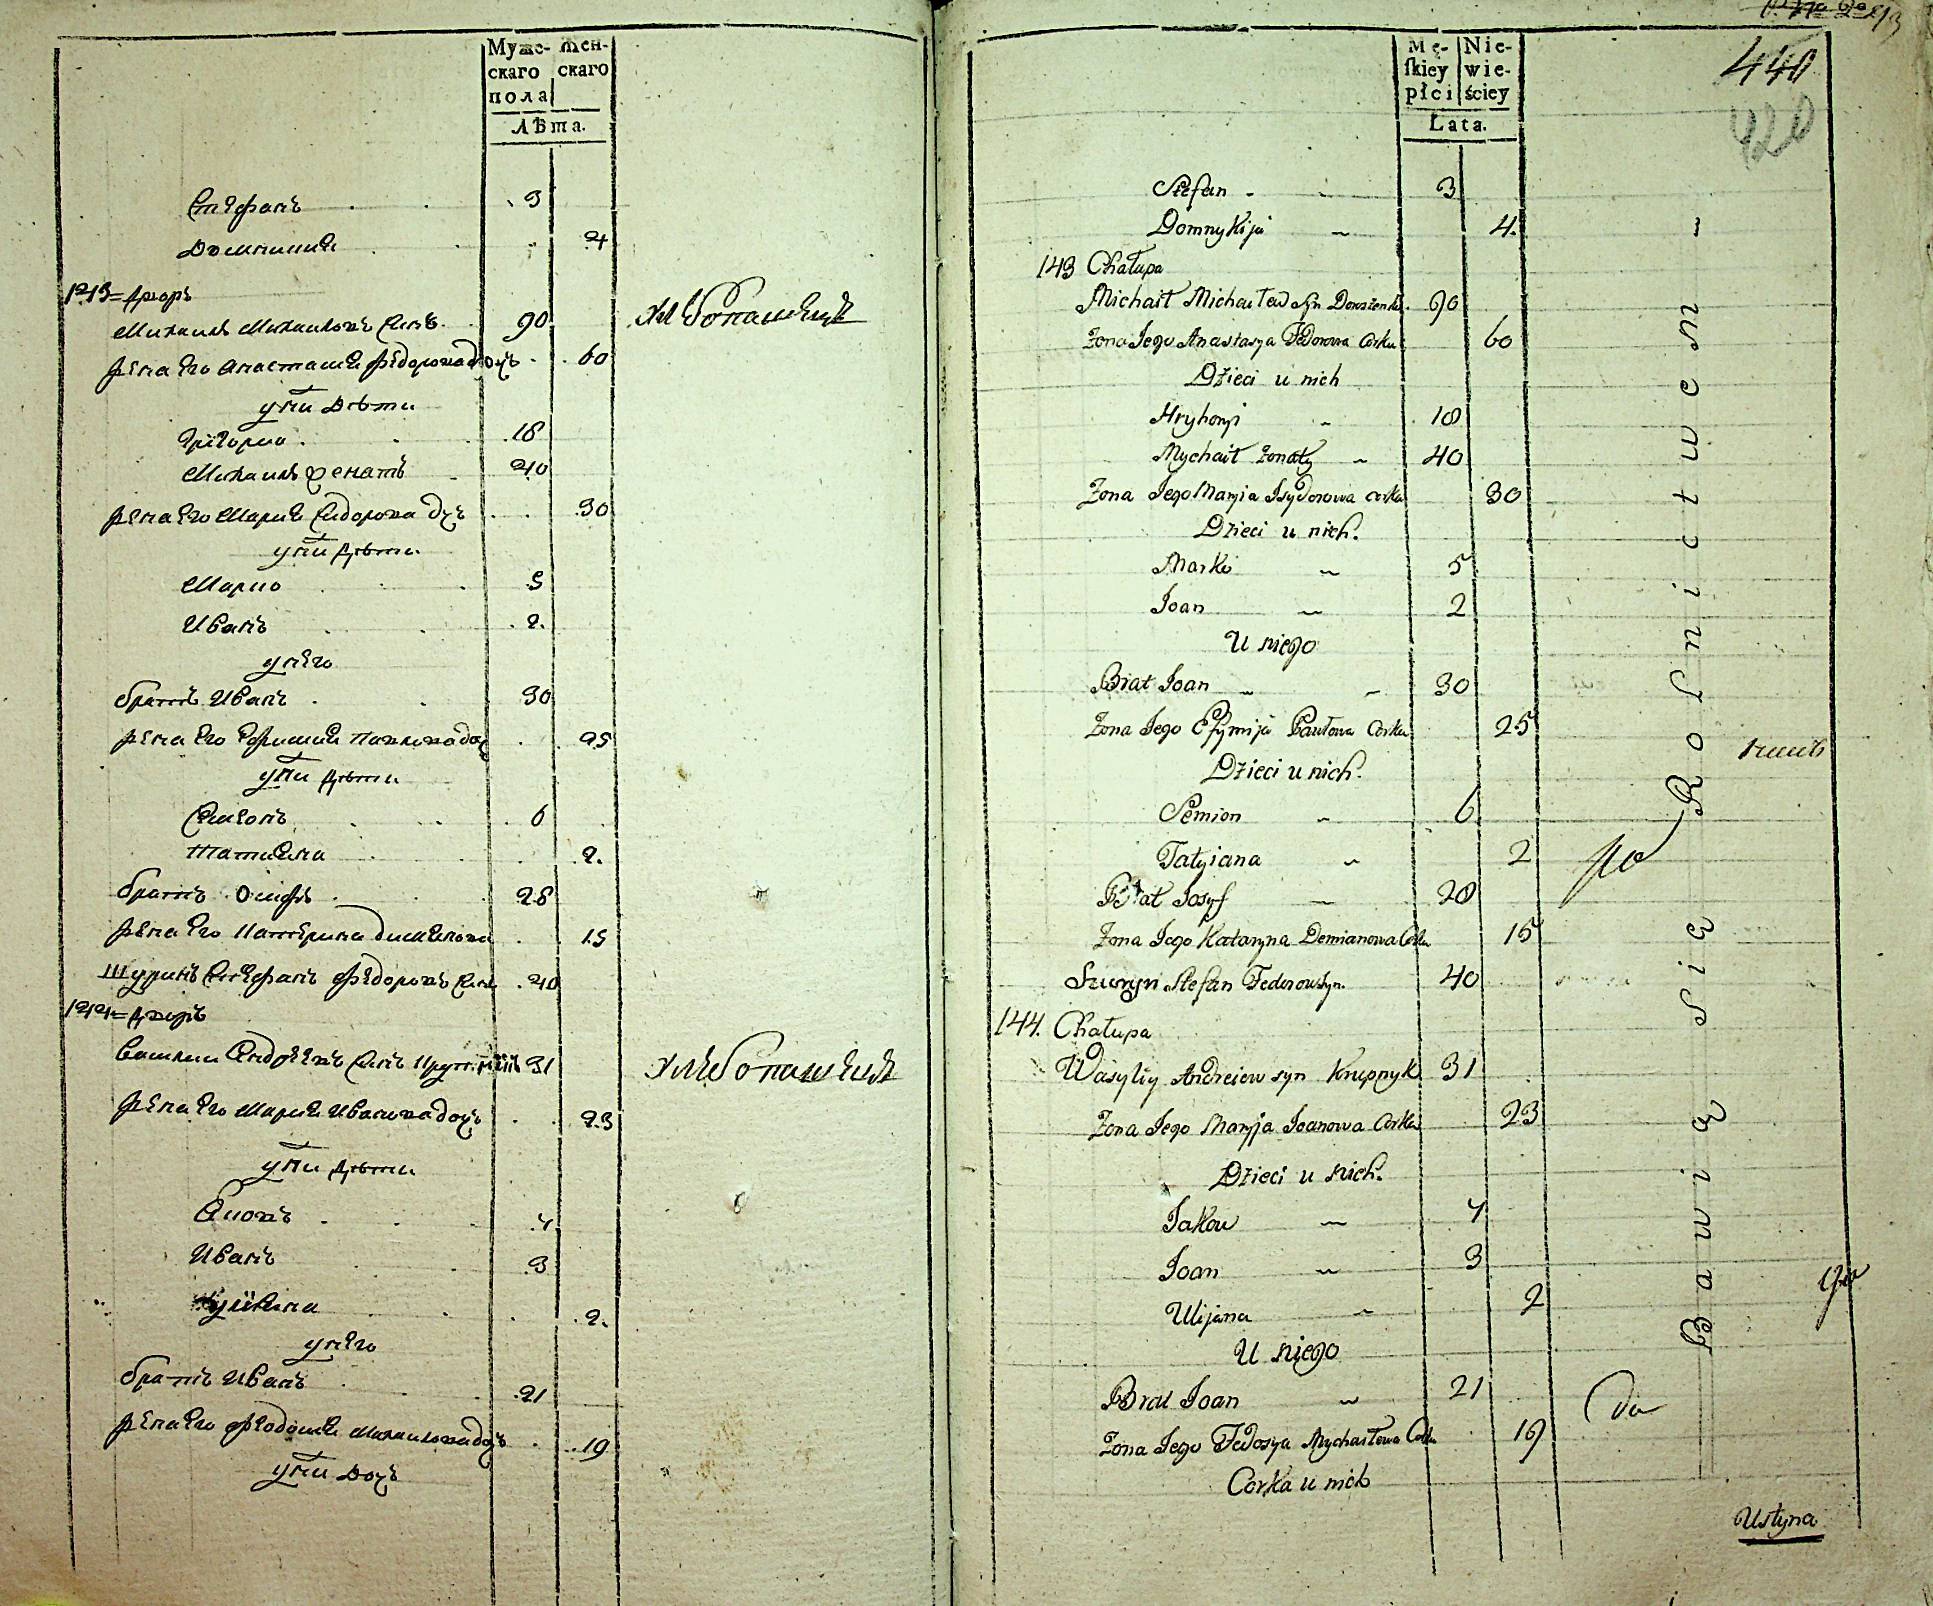 Муже- Жен-
скаго скаго
пола
Лѣта.
Стефанъ 3
Домникия 4
143 = Дворъ
Михаилъ Михаиловъ Сынъ 90 Хлебопашецъ
Жена Его Анастасия Федорова дочь 60
у них Дѣти
Григорио 18
Михаилъ женатъ 40
Жена Его Мария Сидорова дчь 30
у них Дѣти
Марко 5
Иванъ 2
у него
братъ Иванъ 30
Жена Его Ефимия Павлова доч 25
у них Дѣти
Симонъ 6
Татияна 2
братъ Осифъ 28
Жена Его Катерина Димянова 15
Шуринъ Стефанъ Федоровъ Сынъ 40
144 = Дворъ
Василии Андреевъ Сынъ Крупникъ 31 Хлебопашецъ
Жена Его Мария Иванова дочь 23
у них Дѣти
Яковъ 4
Иванъ 3
Улияна 2
у него
братъ Иванъ 21
Жена Его Феодосия Михаилова дочь 19
у них Дочь
440
420
Mę- Nie-
skiey wie-
płci ściey
Lata.
Stefan 3
Domnykija 4
143 Chałupa
Michaił Michaiłow Syn 90
Zona Jego Anastasya Fedorowa Corka 60
Dzieci u nich
Hryhory 18
Mychaił Zonaty 40
Zona Jego Maryia Isydorowa Corka 30
Dzieci u nich.
Marko 5
Joan 2
U niego
Brat Joan 30
Zona Jego Efymija Pawłowa Corka 25
Dzieci u nich.
Semion 6
Tatyiana 2
Brat Josyf 28
Zona Jego Kataryna Demianowa Corka 15
Szuryn Stefan Fedorow Syn. 40
144. Chałupa
Wasyliy Andreiew syn Krupnyk 31
Zona Jego Maryja Joanowa Corka 23
Dzieci u nich.
Jakow 4
Joan 3
Ulijana 2
U niego
Brat Joan 21
Zona Jego Fedosya Mychaiłowa Corka 19
Corka u nich
Bawią się Rolnictwem
Ustyna